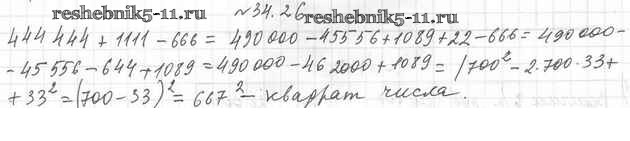 reshebnik5-11.ru №34.26 reshebnik5-11.ru
444 444 + 1111 - 666 = 490 000 - 45556 + 1089 + 22 - 666 = 490 000 -
- 45 556 - 644 + 1089 = 490 000 - 46 2000 + 1089 = /700² - 2.700·33 +
+ 33² = (700 - 33)² = 667² - квадрат числа.